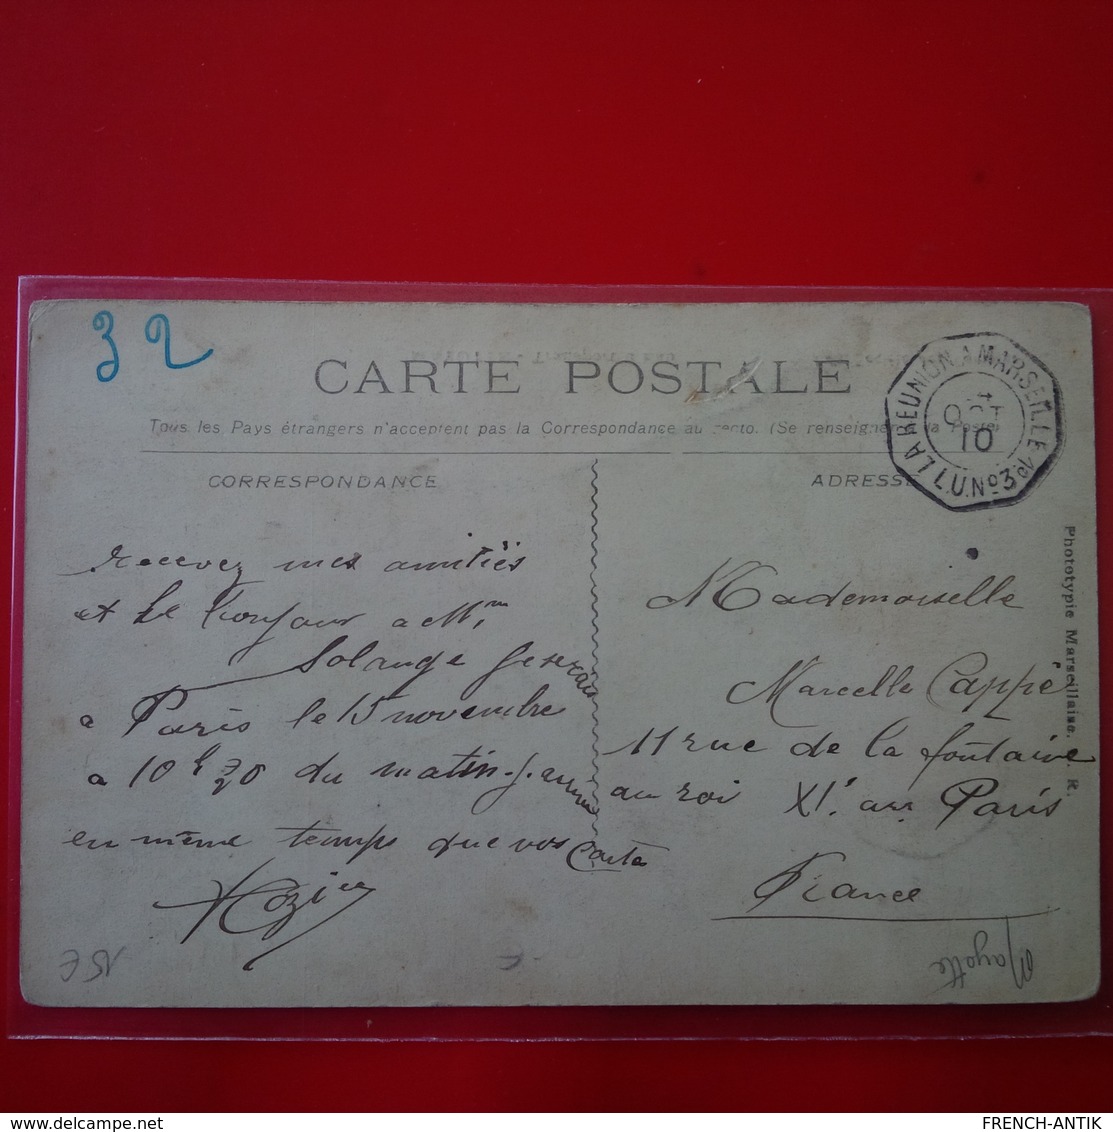 32
CARTE POSTALE
Tous les Pays étrangers n'acceptent pas la Correspondance au recto. (Se renseigner à la Poste)
CORRESPONDANCE
ADRESSE
LA REUNION A MARSEILLE
L.U.Nº3
4
OCT
10
recevez mes amitiés
et le bonjour a Mme
Solange je serai
a Paris le 15 novembre
a 10h 20 du matin
en même temps que vos carte
Mademoiselle
Marcelle Cappé
11 rue de la fontaine
au roi XIe arr Paris
France
Phototypie Marseillaise.
Mayotte
15€
FRENCH-ANTIK